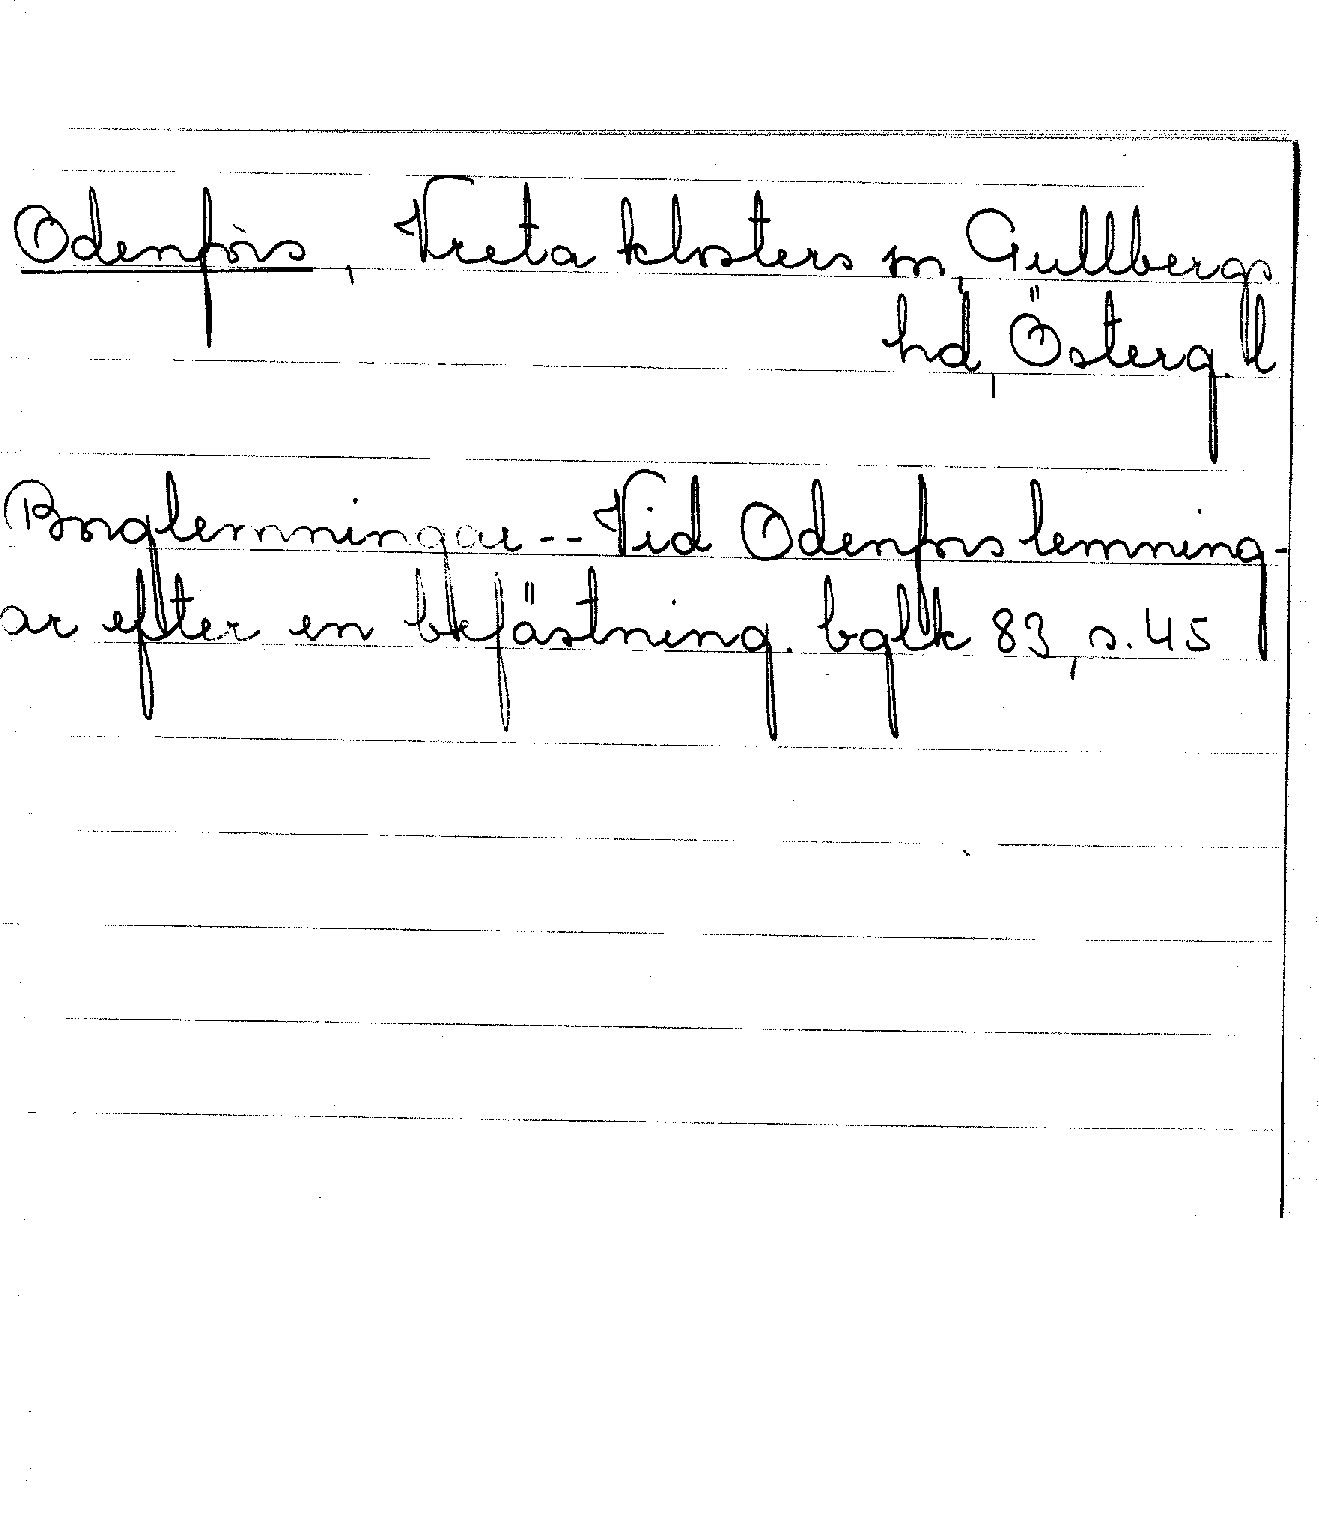 Odenfors, Vreta klosters sn, Gullbergs
hd, Österg. l
Borglemningar -- Vid Odenfors lemning-
ar efter en bkfästning. bglk 83, s. 45